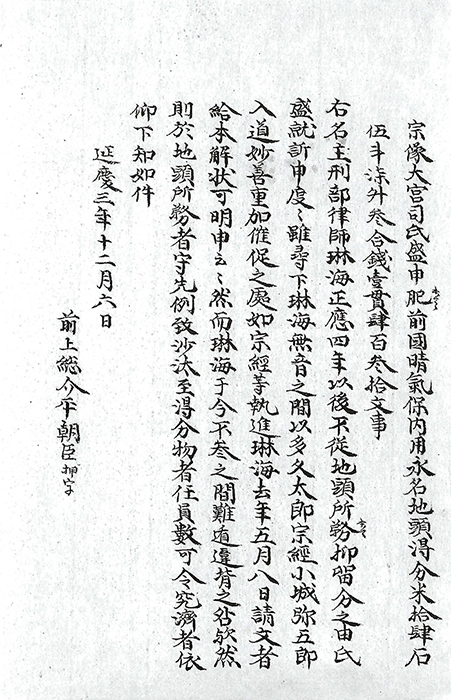 宗像大宮司氏盛申肥前國晴氣保内用永名地頭得分米拾肆石
伍斗柒升叄合錢壹貫肆百叄拾文事
右名主刑部律師琳海正應四年以後不従地頭所務抑留分之由氏
盛就訴申度々雖尋下琳海無音之間以多久太郎宗經小城弥五郎
入道妙善重加催促之處如宗經等執進琳海去年五月八日請文者
給本解状可明申云々然而琳海于今不叄之間難遁違背之咎欤然
則於地頭所務者守先例致沙汰至得分物者任員數可令究濟者依
仰下知如件
延慶三年十二月六日
前上総介平朝臣押字